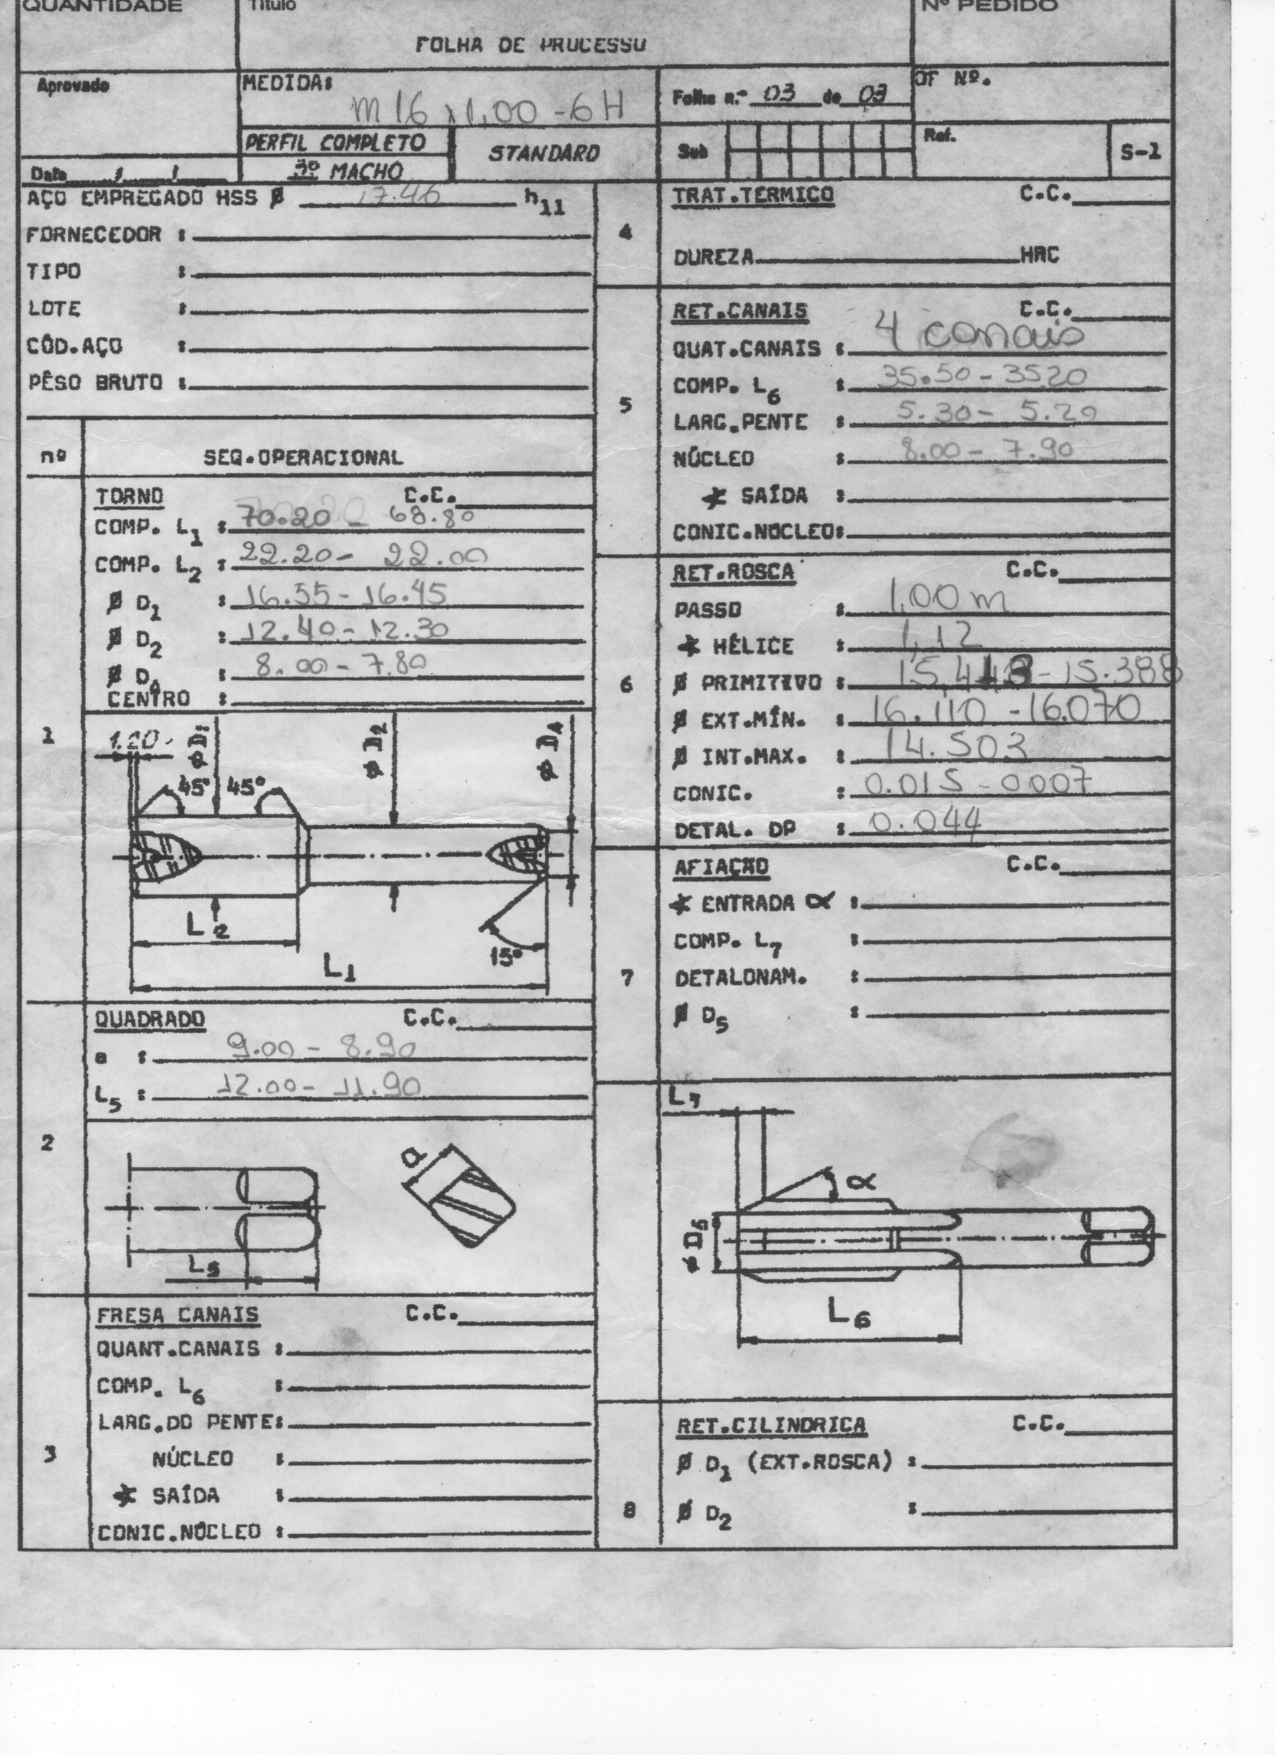 QUANTIDADE
Título
Nº PEDIDO
FOLHA DE PROCESSO
Aprovado
MEDIDA:
M 16 x 1,00 - 6H
Folha n.º 03 de 03
OF Nº.
PERFIL COMPLETO
3º MACHO
STANDARD
Sub
Ref.
S-1
Data / /
AÇO EMPREGADO HSS Ø 17.46 h11
FORNECEDOR :
TIPO :
LOTE :
CÔD.AÇO :
PÊSO BRUTO :
nº
SEQ.OPERACIONAL
1
TORNO C.C.
COMP. L1 : 70.20 - 68.80
COMP. L2 : 22.20 - 22.00
Ø D1 : 16.55 - 16.45
Ø D2 : 12.40 - 12.30
Ø DA : 8.00 - 7.80
CENTRO :
1.20
Ø D1
Ø D2
Ø DA
45°
45°
L2
15°
L1
2
QUADRADO C.C.
a : 9.00 - 8.90
L5 : 12.00 - 11.90
a
L5
3
FRESA CANAIS C.C.
QUANT.CANAIS :
COMP. L6 :
LARG.DO PENTE:
NÚCLEO :
SAÍDA :
CONIC.NÚCLEO :
4
TRAT.TÉRMICO C.C.
DUREZA HRC
5
RET.CANAIS C.C.
QUAT.CANAIS : 4 canais
COMP. L6 : 35.50 - 3520
LARG.PENTE : 5.30 - 5.20
NÚCLEO : 8.00 - 7.90
SAÍDA :
CONIC.NÚCLEO:
6
RET.ROSCA C.C.
PASSO : 1,00 m
HÉLICE : 1,12
Ø PRIMITIVO : 15,418 - 15.388
Ø EXT.MÍN. : 16.110 - 16.070
Ø INT.MAX. : 14.503
CONIC. : 0.015 - 0007
DETAL. DP : 0.044
7
AFIAÇÃO C.C.
ENTRADA α :
COMP. L7 :
DETALONAM. :
Ø D5 :
L7
α
Ø D5
L6
8
RET.CILINDRICA C.C.
Ø D1 (EXT.ROSCA) :
Ø D2 :